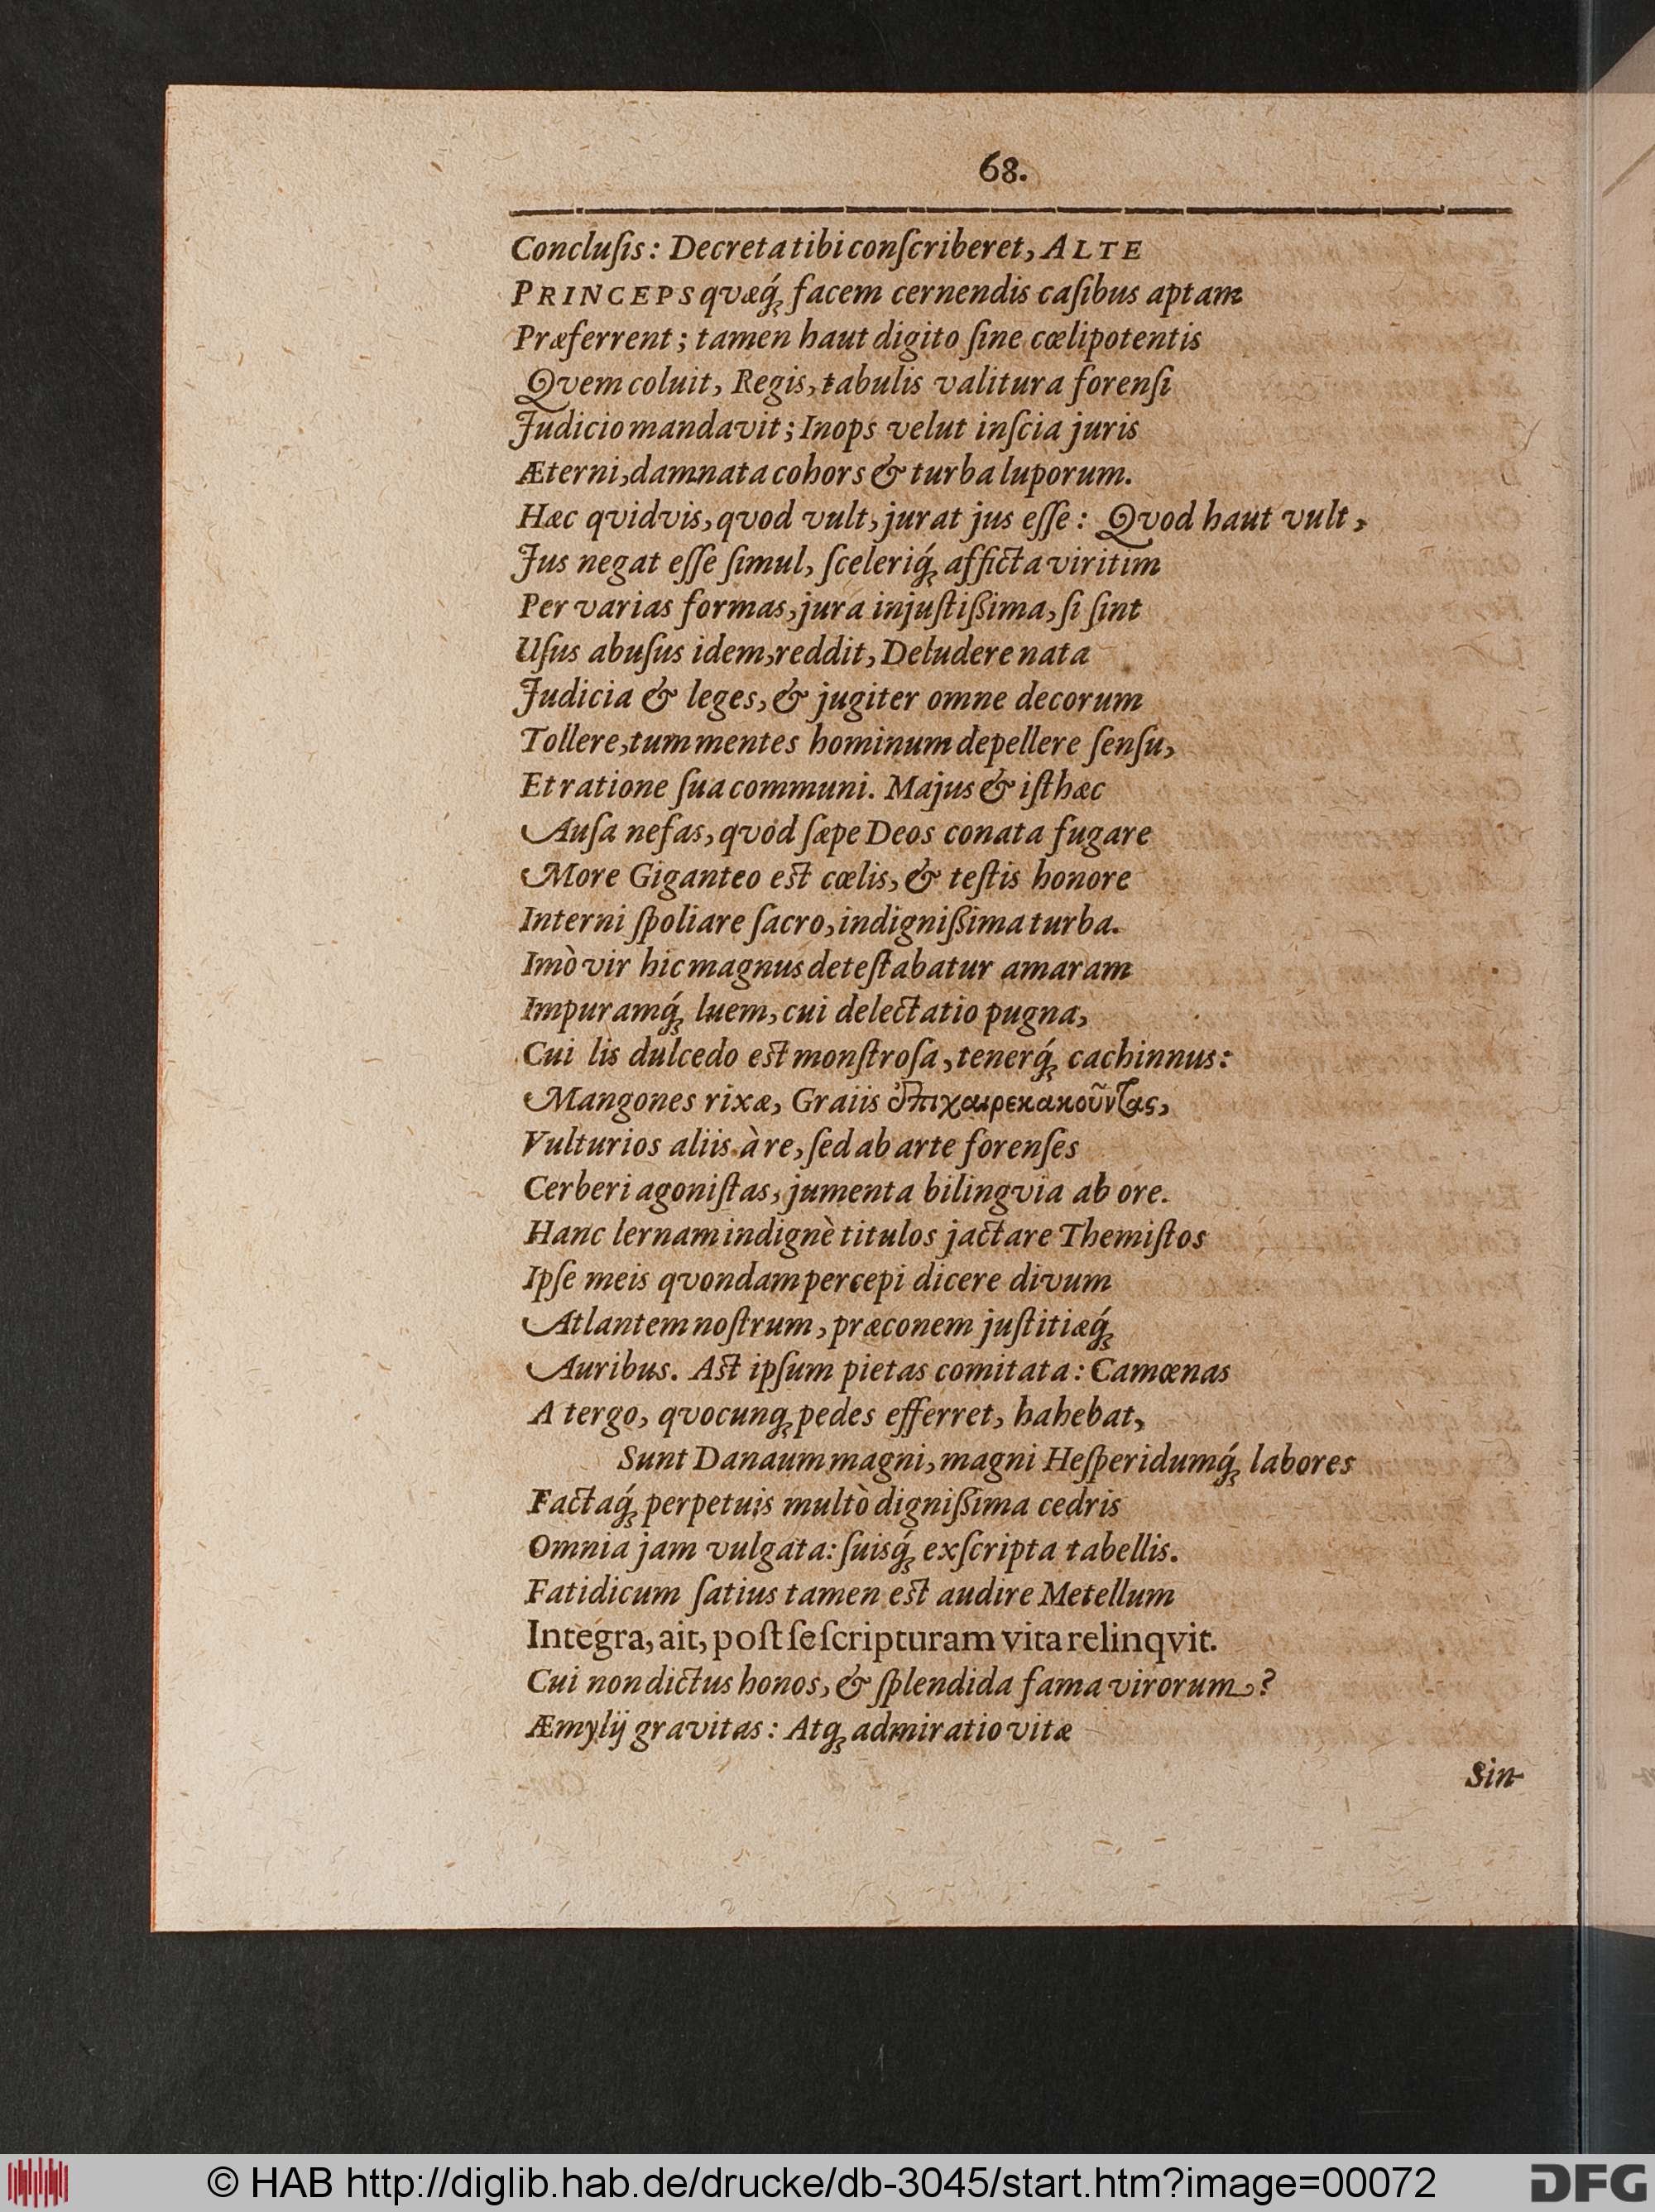 68.
Concluſis: Decreta tibi conſcriberet, ALTE
PRINCEPS qvæq́ꝫ facem cernendis caſibus aptam
Præferrent; tamen haut digito ſine cœlipotentis
Qvem coluit, Regis, tabulis valitura forenſi
Judicio mandavit; Inops velut inſcia juris
Æterni, damnata cohors & turba luporum.
Hæc qvidvis, qvod vult, jurat jus eſſe: Qvod haut vult,
Jus negat eſſe ſimul, ſceleriq́ꝫ afficta viritim
Per varias formas, jura injuſtißima, ſi ſint
Uſus abuſus idem, reddit, Deludere nata
Judicia & leges, & jugiter omne decorum
Tollere, tum mentes hominum depellere ſenſu,
Et ratione ſua communi. Majus & iſthæc
Auſa nefas, qvod ſæpe Deos conata fugare
More Giganteo eſt cœlis, & teſtis honore
Interni ſpoliare ſacro, indignißima turba.
Imò vir hic magnus deteſtabatur amaram
Impuramq́ꝫ luem, cui delectatio pugna,
Cui lis dulcedo eſt monſtroſa, tenerq́ꝫ cachinnus:
Mangones rixæ, Graiis ἐπιχαιρεκακοῦντας,
Vulturios aliis à re, ſed ab arte forenſes
Cerberi agoniſtas, jumenta bilingvia ab ore.
Hanc lernam indignè titulos jactare Themiſtos
Ipſe meis qvondam percepi dicere divum
Atlantem noſtrum, præconem juſtitiæq́ꝫ
Auribus. Aſt ipſum pietas comitata: Camœnas
A tergo, qvocunqꝫ pedes efferret, hahebat,
Sunt Danaum magni, magni Heſperidumq́ꝫ labores
Factaq́ꝫ perpetuis multò dignißima cedris
Omnia jam vulgata: ſuisq́ꝫ exſcripta tabellis.
Fatidicum ſatius tamen eſt audire Metellum
Integra, ait, poſt ſe ſcripturam vita relinqvit.
Cui non dictus honos, & ſplendida fama virorum?
Æmylij gravitas: Atqꝫ admiratio vitæ
Sin-
© HAB http://diglib.hab.de/drucke/db-3045/start.htm?image=00072
DFG